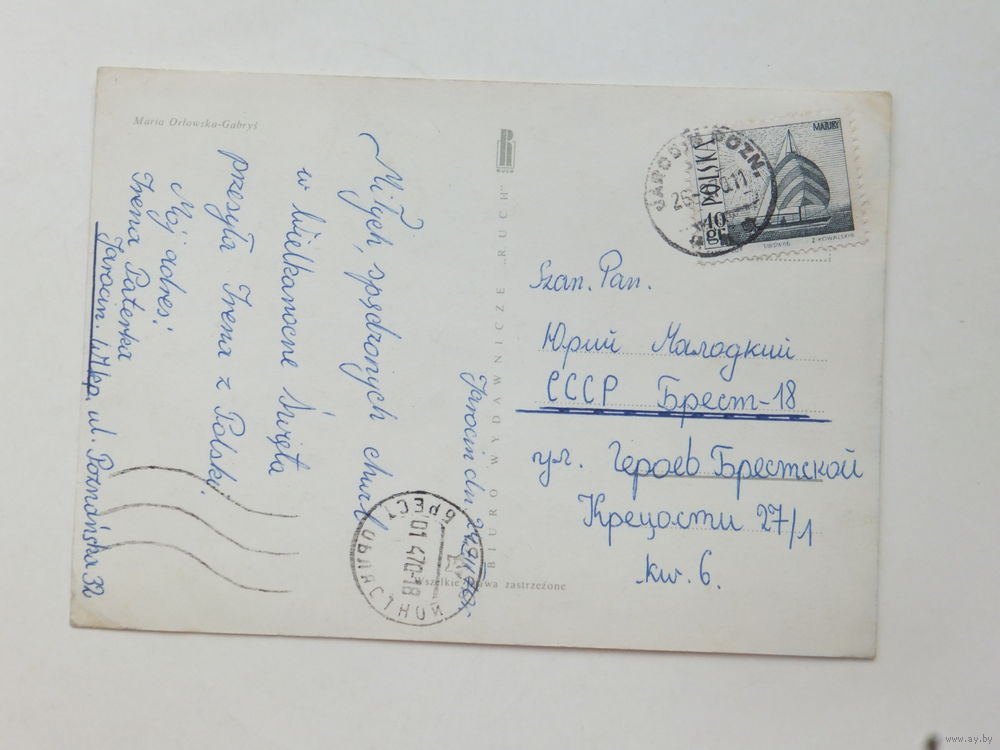 Maria Orłowska-Gabryś
Miłych, spędzonych chwil
w Wielkanocne Święta
przesyła Irena z Polski.
Mój adres:
Irena Paterka
Jarocin. Wlkp, ul. Poznańska 32
Jarocin dn
BIURO WYDAWNICZE „RUCH"
Wszelkie prawa zastrzeżone
БРЕСТ
01 470-18
ОБЛАСТНОЙ
JAROCIN POZN.
POLSKA
MAZURY
40 gr
Z. KOWALSKI
Szan. Pan.
Юрий Малодкий
СССР Брест-18
ул. Героев Брестской
Крецости 27/1
kw. 6.
www.ay.by